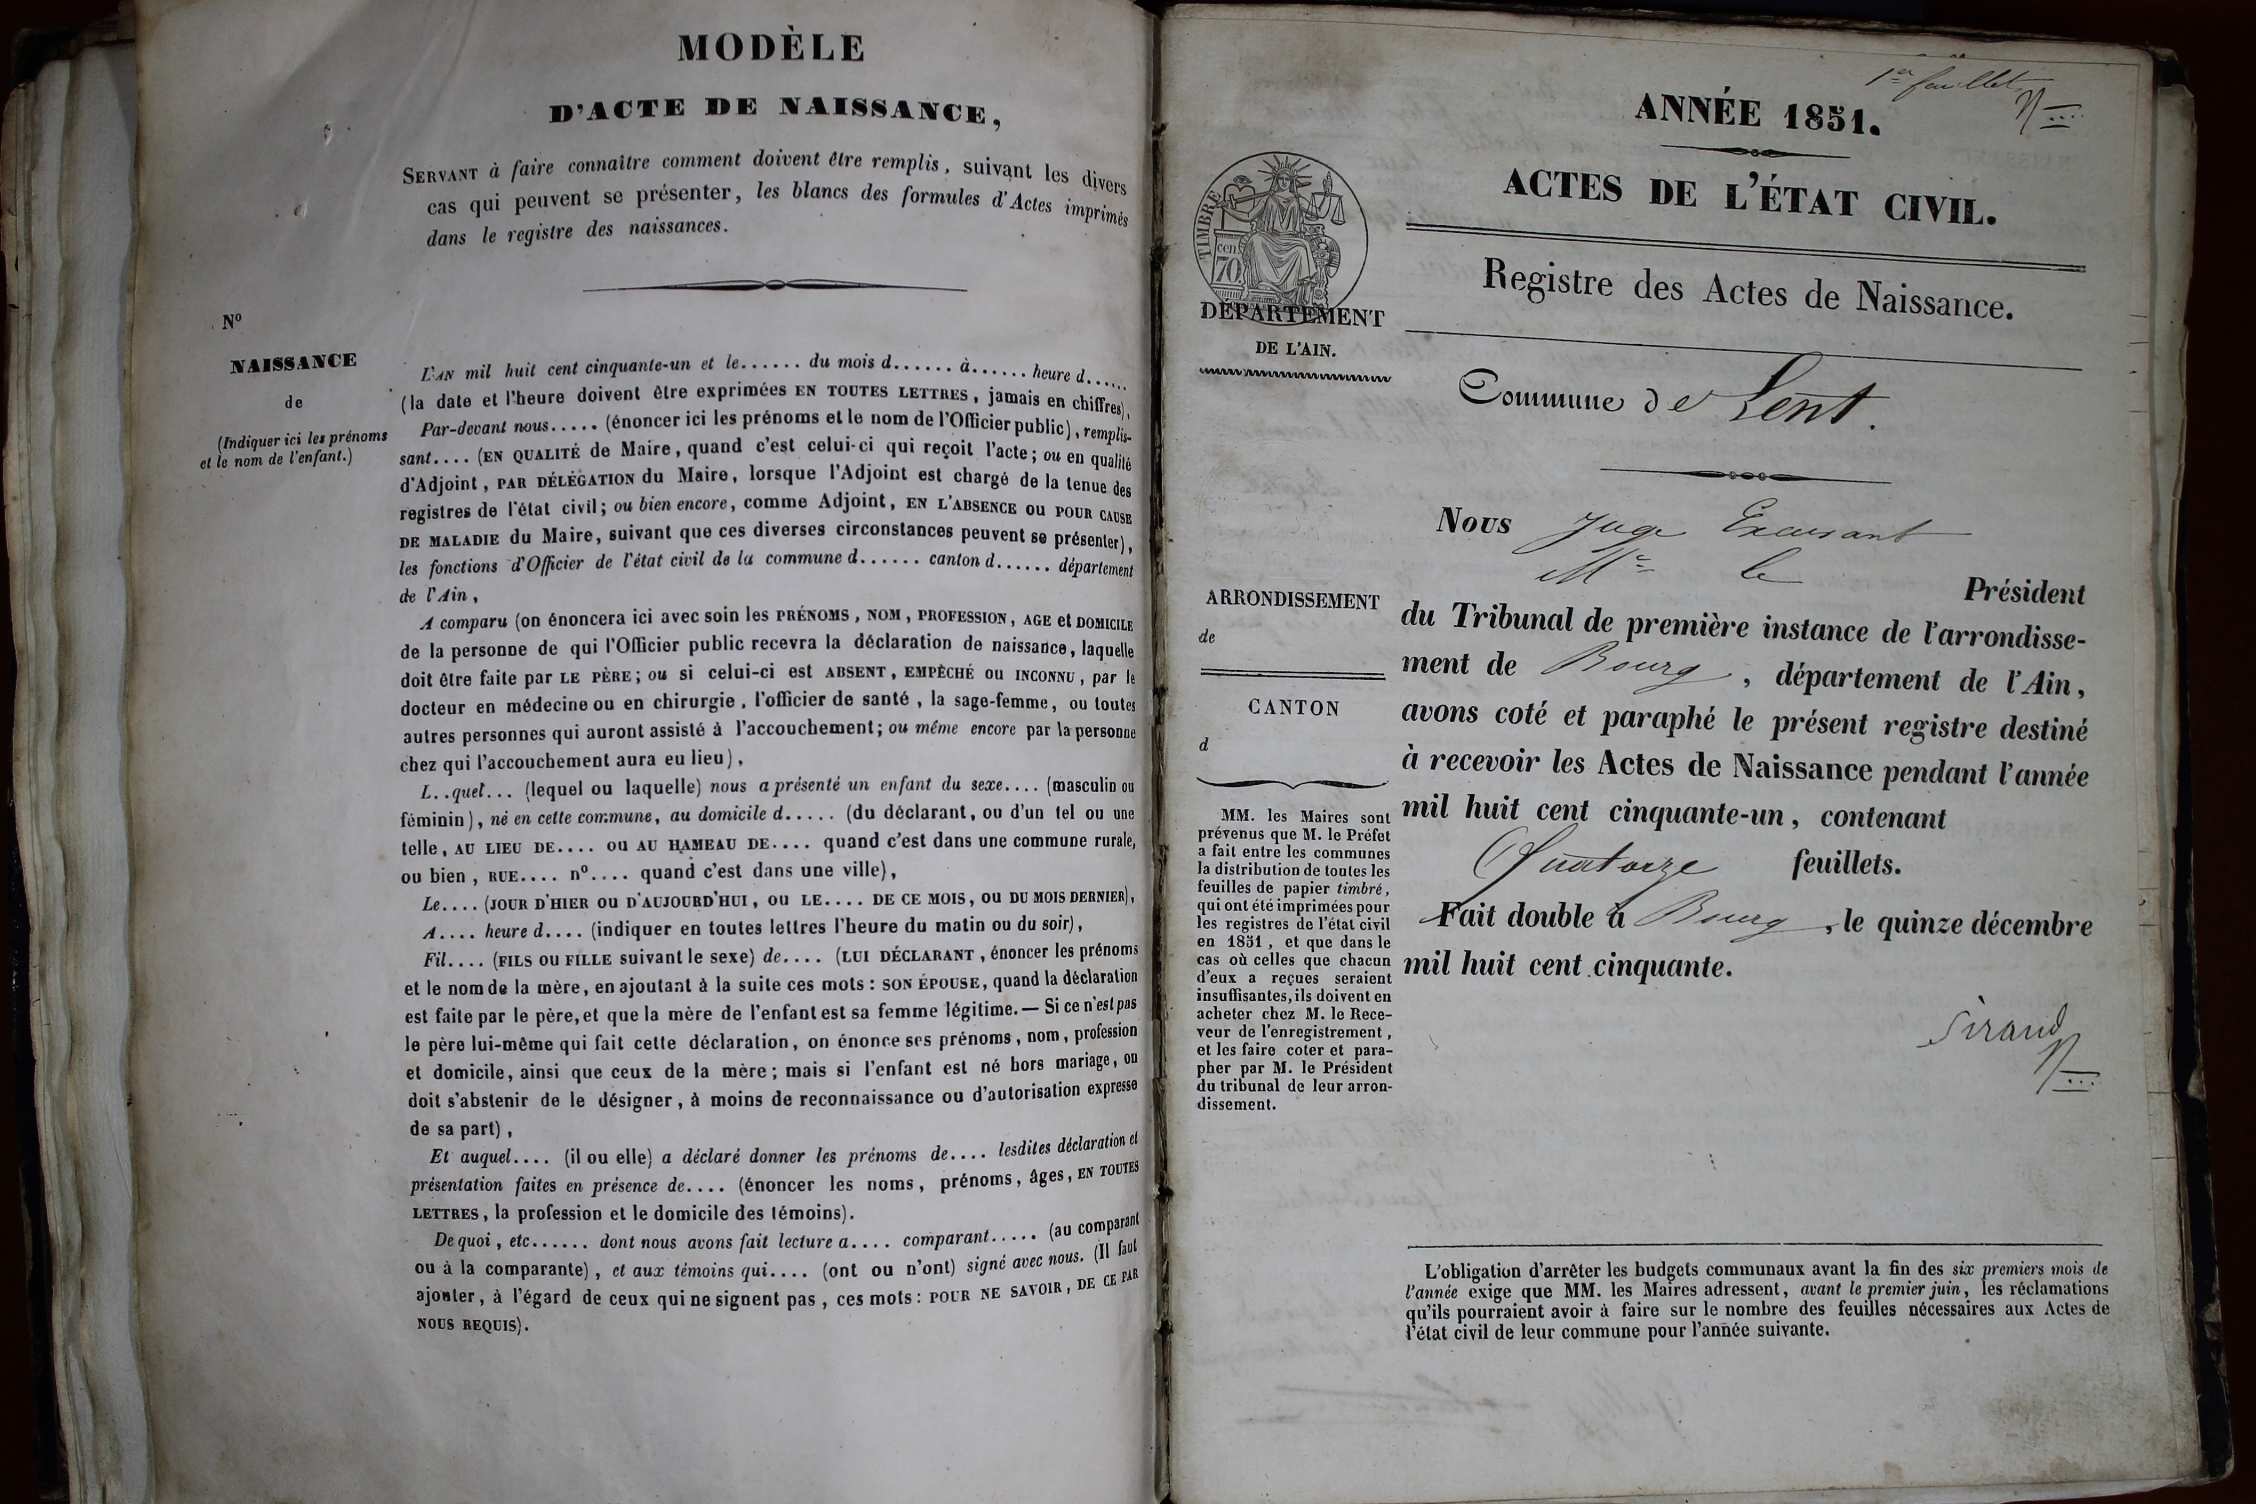 MODÈLE
D'ACTE DE NAISSANCE,
SERVANT à faire connaître comment doivent être remplis, suivant les divers
cas qui peuvent se présenter, les blancs des formules d'Actes imprimés
dans le registre des naissances.
No
NAISSANCE
de
(Indiquer ici les prénoms
et le nom de l'enfant.)
L'AN mil huit cent cinquante-un et le...... du mois d...... à...... heure d......
(la date et l'heure doivent être exprimées EN TOUTES LETTRES, jamais en chiffres),
Par-devant nous..... (énoncer ici les prénoms et le nom de l'Officier public), remplis-
sant.... (EN QUALITÉ de Maire, quand c'est celui-ci qui reçoit l'acte; ou en qualité
d'Adjoint, PAR DÉLÉGATION du Maire, lorsque l'Adjoint est chargé de la tenue des
registres de l'état civil; ou bien encore, comme Adjoint, EN L'ABSENCE ou POUR CAUSE
DE MALADIE du Maire, suivant que ces diverses circonstances peuvent se présenter),
les fonctions d'Officier de l'état civil de la commune d...... canton d...... département
de l'Ain,
A comparu (on énoncera ici avec soin les PRÉNOMS, NOM, PROFESSION, AGE et DOMICILE
de la personne de qui l'Officier public recevra la déclaration de naissance, laquelle
doit être faite par LE PÈRE; ou si celui-ci est ABSENT, EMPÊCHÉ ou INCONNU, par le
docteur en médecine ou en chirurgie, l'officier de santé, la sage-femme, ou toutes
autres personnes qui auront assisté à l'accouchement; ou même encore par la personne
chez qui l'accouchement aura eu lieu),
L..quel... (lequel ou laquelle) nous a présenté un enfant du sexe.... (masculin ou
féminin), né en cette commune, au domicile d..... (du déclarant, ou d'un tel ou une
telle, AU LIEU DE.... ou AU HAMEAU DE.... quand c'est dans une commune rurale,
ou bien, RUE.... no.... quand c'est dans une ville),
Le.... (JOUR D'HIER ou D'AUJOURD'HUI, ou LE.... DE CE MOIS, ou DU MOIS DERNIER),
A.... heure d.... (indiquer en toutes lettres l'heure du matin ou du soir),
Fil.... (FILS ou FILLE suivant le sexe) de.... (LUI DÉCLARANT, énoncer les prénoms
et le nom de la mère, en ajoutant à la suite ces mots: SON ÉPOUSE, quand la déclaration
est faite par le père, et que la mère de l'enfant est sa femme légitime.— Si ce n'est pas
le père lui-même qui fait cette déclaration, on énonce ses prénoms, nom, profession
et domicile, ainsi que ceux de la mère; mais si l'enfant est né hors mariage, on
doit s'abstenir de le désigner, à moins de reconnaissance ou d'autorisation expresse
de sa part),
Et auquel.... (il ou elle) a déclaré donner les prénoms de.... lesdites déclaration et
présentation faites en présence de.... (énoncer les noms, prénoms, âges, EN TOUTES
LETTRES, la profession et le domicile des témoins).
De quoi, etc...... dont nous avons fait lecture a.... comparant..... (au comparant
ou à la comparante), et aux témoins qui.... (ont ou n'ont) signé avec nous. (Il faut
ajouter, à l'égard de ceux qui ne signent pas, ces mots: POUR NE SAVOIR, DE CE PAR
NOUS REQUIS).
1er feuillet
ANNÉE 1851.
ACTES DE L'ÉTAT CIVIL.
TIMBRE
cen.
70.
DÉPARTEMENT
DE L'AIN.
Registre des Actes de Naissance.
Commune de Lent.
Nous Juge Excusant
Mr le
Président
du Tribunal de première instance de l'arrondisse-
ment de Bourg, département de l'Ain,
avons coté et paraphé le présent registre destiné
à recevoir les Actes de Naissance pendant l'année
mil huit cent cinquante-un, contenant
Quatorze feuillets.
Fait double à Bourg, le quinze décembre
mil huit cent cinquante.
Sirand
ARRONDISSEMENT
de
CANTON
d
MM. les Maires sont
prévenus que M. le Préfet
a fait entre les communes
la distribution de toutes les
feuilles de papier timbré,
qui ont été imprimées pour
les registres de l'état civil
en 1851, et que dans le
cas où celles que chacun
d'eux a reçues seraient
insuffisantes, ils doivent en
acheter chez M. le Rece-
veur de l'enregistrement,
et les faire coter et para-
pher par M. le Président
du tribunal de leur arron-
dissement.
L'obligation d'arrêter les budgets communaux avant la fin des six premiers mois de
l'année exige que MM. les Maires adressent, avant le premier juin, les réclamations
qu'ils pourraient avoir à faire sur le nombre des feuilles nécessaires aux Actes de
l'état civil de leur commune pour l'année suivante.